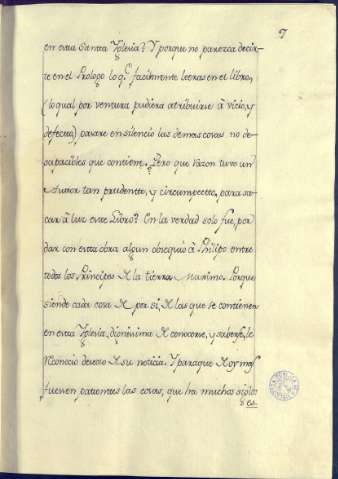 7
en esta Sienta Yglesia? Y porque no parezca decir-
te en el Prologo lo q.e facilmente leeras en el libro,
(lo qual por ventura pudiera atribuirse à vicio, y
defecto,) pasare en silencio las demas cosas no de-
sapacibles que contiene. Pero que Razon tuvo un
Autor tan prudente, y circunspecto, para sa-
car à luz este Libro? En la verdad solo fue, por
dar con esta obra algun obsequio à Philipo entre
todos los Principes de la tierra Maximo. Porque
siendo cada cosa de por sí, de las que se contienen
en esta Yglesia, dignisima de conocerse, y saberse, le
reconocio deseoso de su noticia. Y paraque de oy mas
fuesen patentes las cosas, que ha muchos siglos